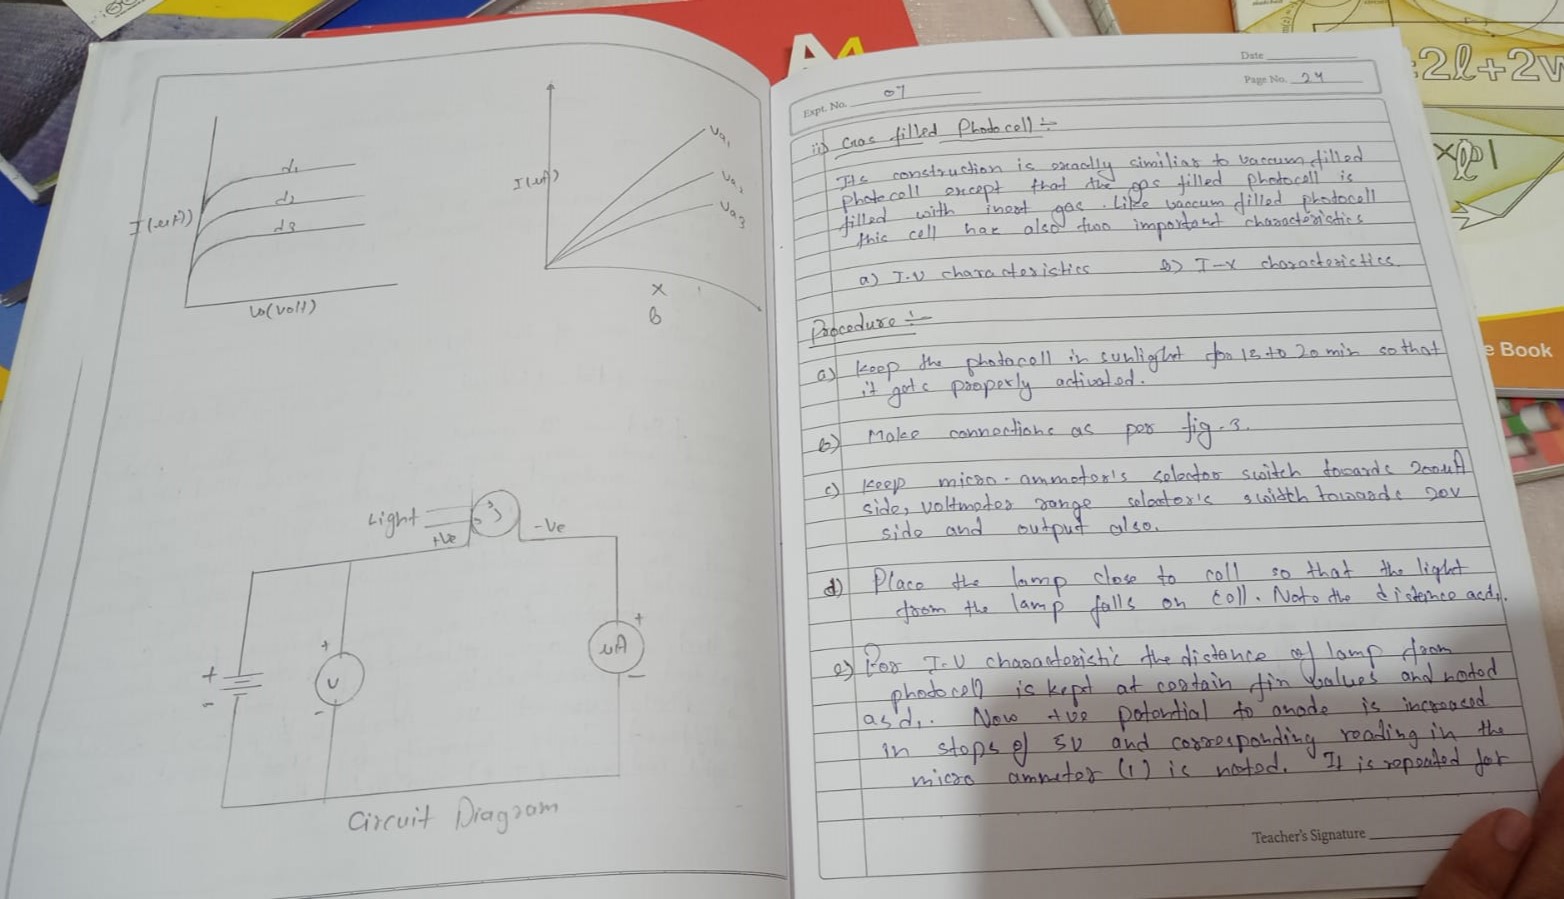 d1
d2
d3
I(uA)
Vo(volt)
I(uA)
Va1
Va2
Va3
X
b
Light
+Ve
-Ve
+
-
+
V
-
+
uA
-
Circuit Diagram
A4
Date
Page No. 24
Expt. No. 07
ii) Gas filled Photocell :-
Its construction is exacally similiar to vaccum filled
photocell except that the gas filled photocell is
filled with inert gas. Like vaccum filled photocell
this cell has also two important characteristics
a) I-V characteristics b) I-X characteristics
Procedure :-
a) Keep the photocell in sunlight for 15 to 20 min so that
it gets properly activated.
b) Make connections as per fig-3.
c) Keep micro-ammeter's selector switch towards 200uA
side, voltmeter range selector's switch towards 20V
side and output also.
d) Place the lamp close to cell so that the light
from the lamp falls on cell. Note the distance as d1.
e) For I-V characteristic the distance of lamp from
photocell is kept at certain fix values and noted
as d1. Now +ve potential to anode is increased
in steps of 5V and corresponding reading in the
micro ammeter (I) is noted. It is repeated for
Teacher's Signature
2l+2w
e Book